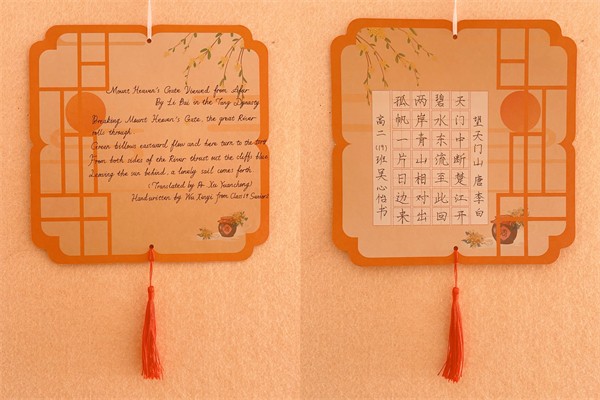 Mount Heaven's Gate Viewed from Afar
By Li Bai in the Tang Dynasty
Breaking Mount Heaven's Gate, the great River
rolls through.
Green billows eastward flow and here turn to the
From both sides of the River thrust out the cliffs
Leaving the sun behind, a lonely sail comes forth
(Translated by Xu Yuanchong)
Handwritten by Wu Xinyi from Class 19 Senior
望天门山 唐 李白
天门中断楚江开
碧水东流至此回
两岸青山相对出
孤帆一片日边来
高二(19)班吴心怡书